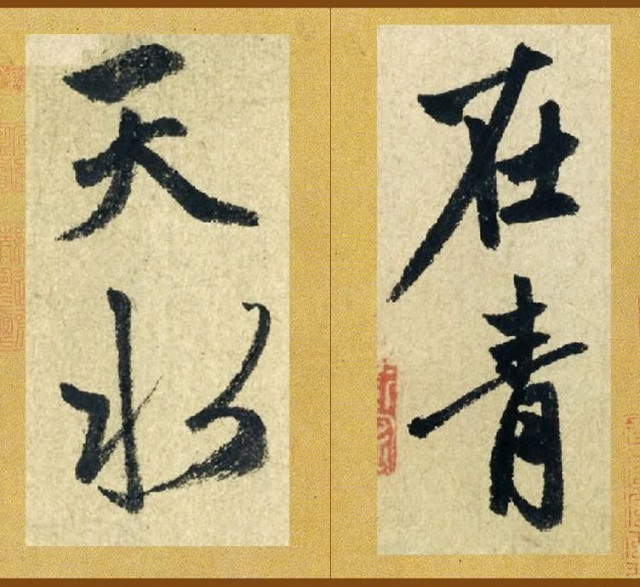 在青
天水